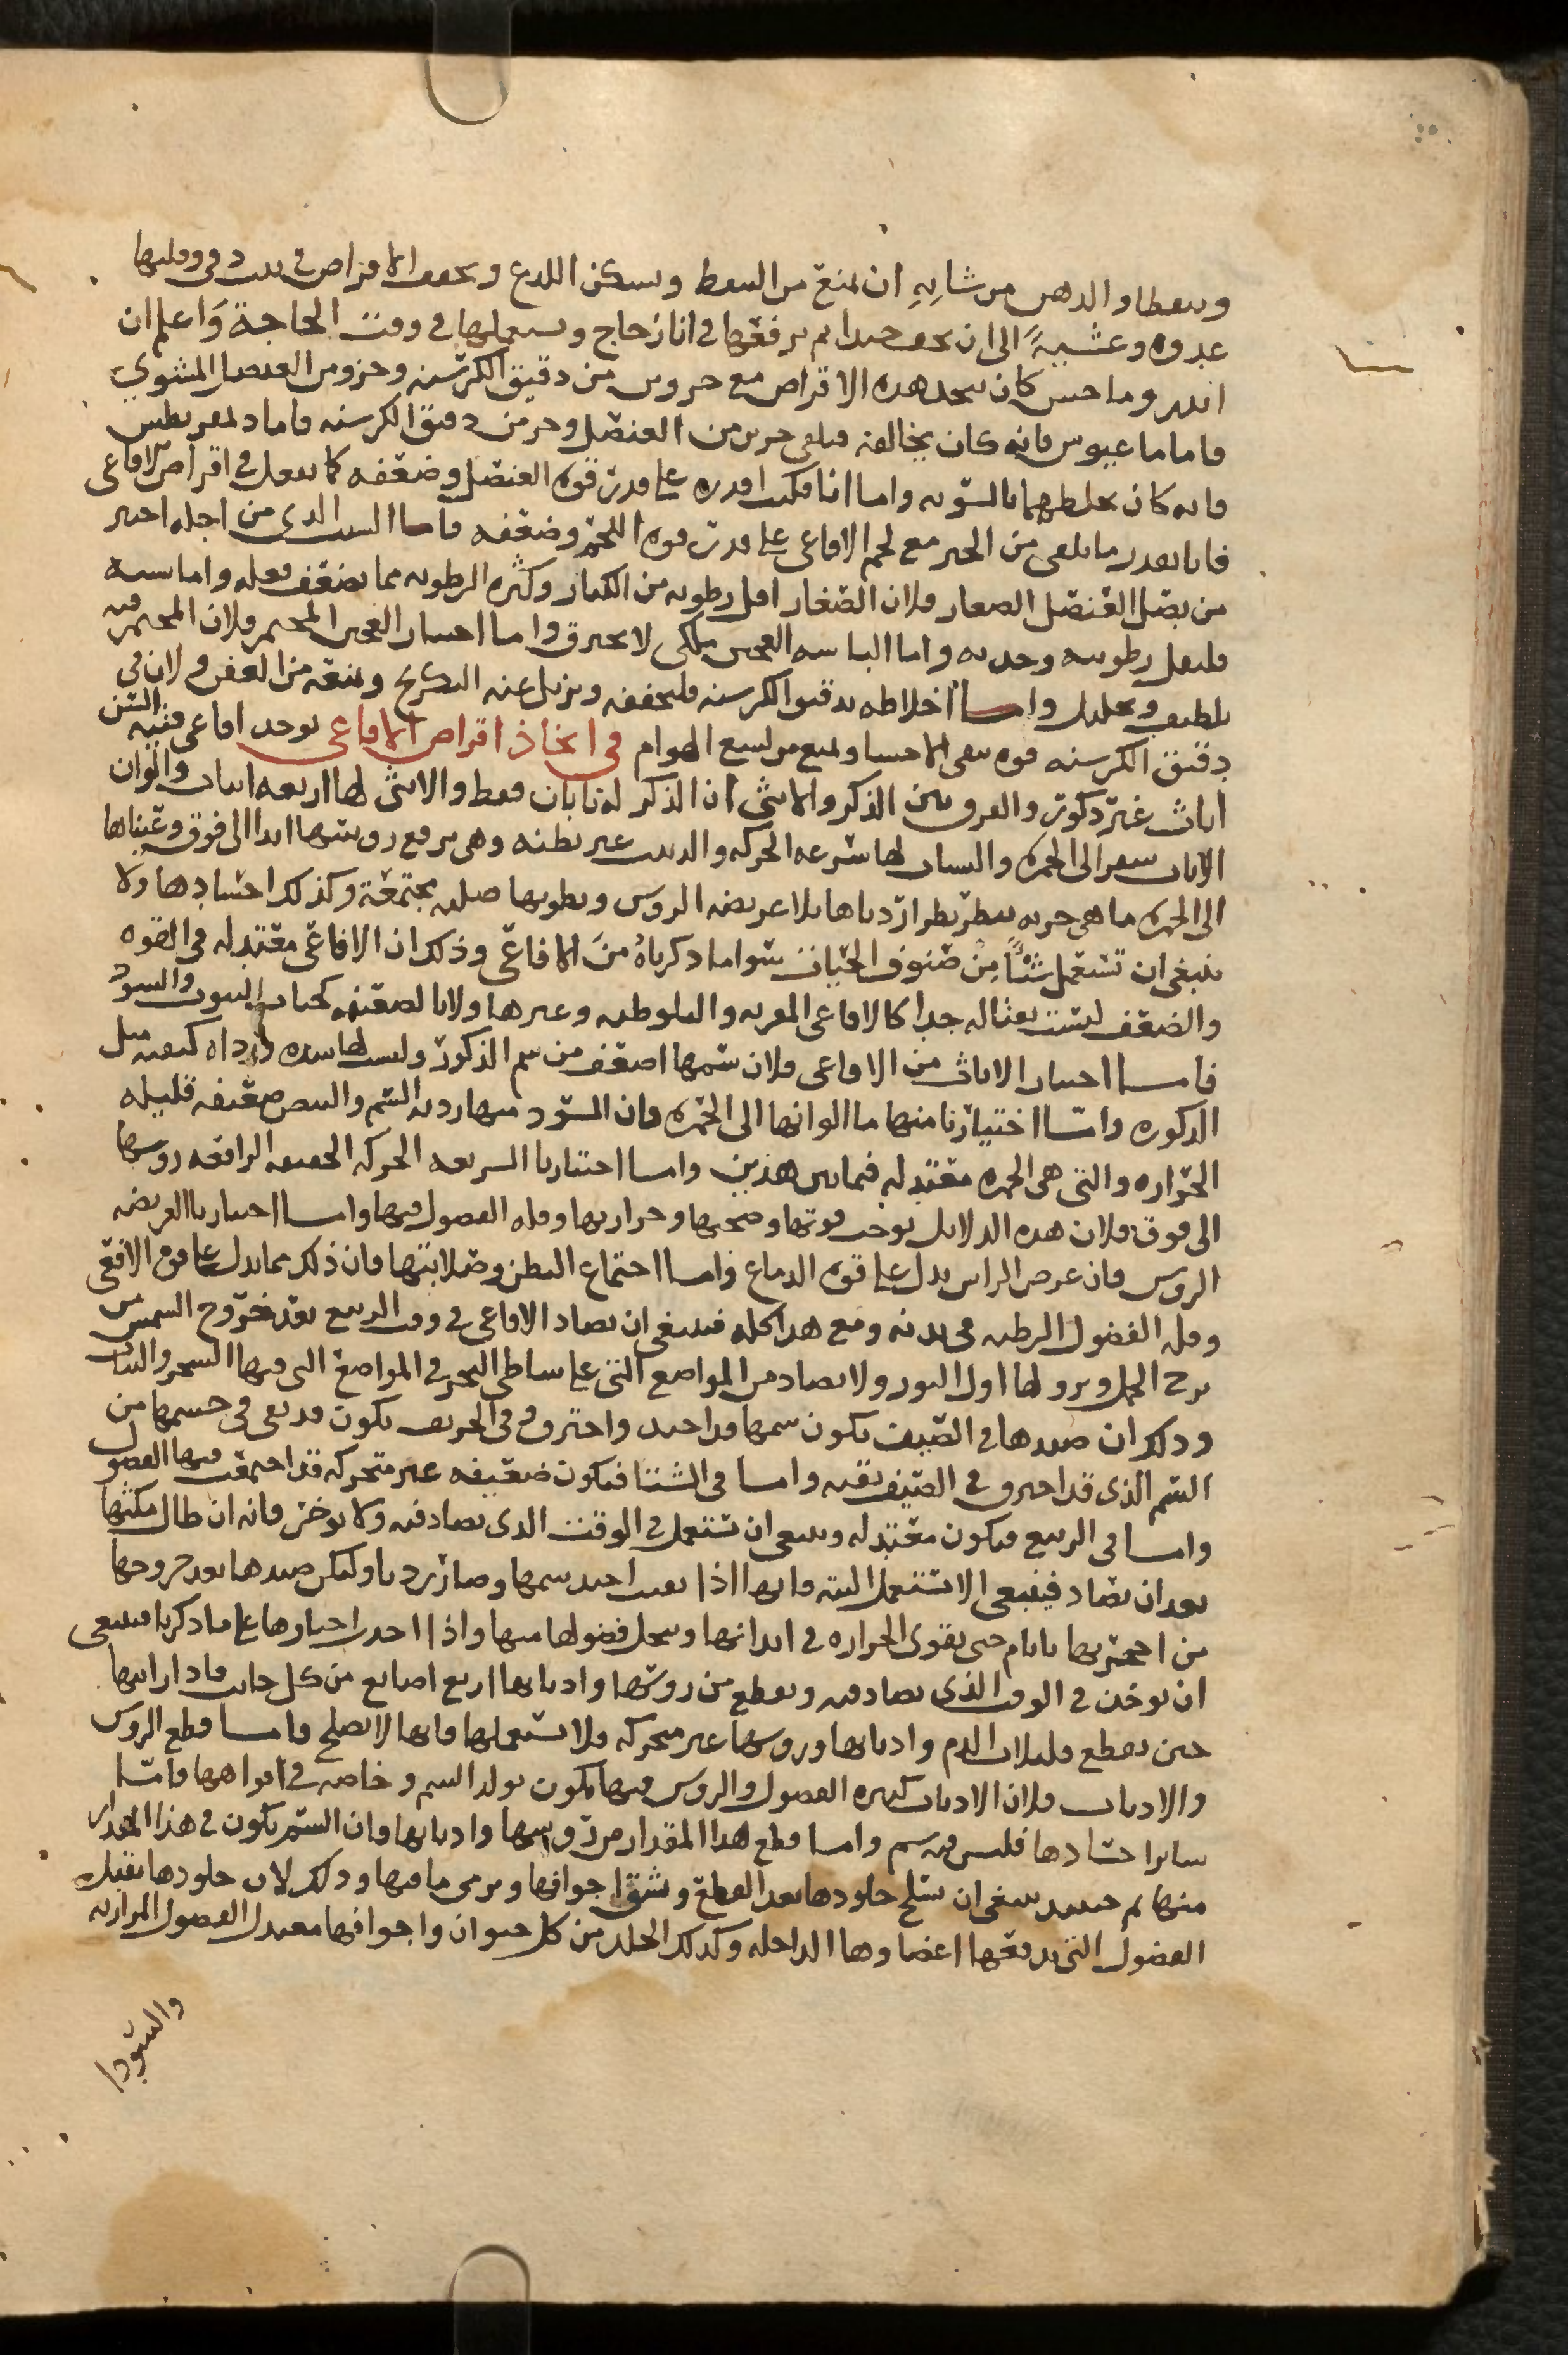 وىىعطا والدهن من شانه ان يمنع من التنفط ويسكن اللدع وتجفف الاقراص في بيت دفي وقلبها
غدوه وعشية الى ان تجف جيدا ثم ترفعها في انا زجاج وتستعملها في وقت الحاجة واعلم ان
اندروماخس كان يتخذ هذه الاقراص مع جزوين من دقيق الكرسنه وجزو من العنصل المشوي
فاما ماغنوس فانه كان يخالفه فيلقي جزين من العنصل وجز من دقيق الكرسنه فاما دلمقريطس
فانه كان يخلطهما بالسويه واما انا فكنت اقدره على قدر قوه العنصل وضعفه كما نفعل في اقراص الافاعى
فانا نقدر ما نلقى من الخبز مع لحم الافاعى على قدر قوه اللحم وضعفه فاما السبب الدى من اجله اختير
من بصل العنصل الصغار فلان الصغار اقل رطوبه من الكبار وكثره الرطوبه مما يضعف فعله واما شيه
فليقل رطوبته وحدته واما الباسه العجين فلكى لا يحترق واما اختيار العجين المختمر فلان المختمر فيه
تلطيف وتحليل واما اخلاطه بدقيق الكرسنه فليجففه ويزيل عنه التكرج ويمنعه من العفن ولان في
دقيق الكرسنه قوه تنقى الاحشا وتمنع من لسع الهوام في اتخاذ اقراص الافاعى يوخذ افاعى فتيه السن
اناث غير ذكور والفرق بين الذكر والانثى ان الذكر له نابان فقط والانثى لها اربعه انياب والوان
الاناث شقر الى الحمره والشباب لها سرعه الحركه والدبيب على بطنه وهى ترفع روسها ابدا الى فوق وعيناها
الى الحمره ما هي جريه تنظر نظرا رديا ها بلا عريضه الروس وبطونها صلبه مجتمعة وكذلك اجسادها ولا
ينبغى ان تستعمل شيا من صنوف الحيات سوا ما ذكرناه من الافاعى وذلك ان الافاعى معتدله في القوه
والضعف ليست بقتاله جدا كالافاعى المقرنه والبلوطيه وغيرها ولا بالضعيفه كحيات البيوت والسود
فاما اختيار الاناث من الافاعى فلان سمها اضعف من سم الذكور وليست لها شده رداه كيفيه مثل
الذكوره واما اختيارنا منها ما الوانها الى الحمره فان السود منها رديه السم والبيض ضعيفه قليله
الحراره والتى هى الحمره معتدله فيما بين هذين واما اختيارنا السريعه الحركه الخفيفه الرافعه روسها
الى فوق فلان هذه الدلايل توجب قوتها وصحتها وحرارتها وقله الفضول فيها واما اختيارنا العريضه
الروس فان عرض الراس يدل على قوه الدماغ واما اجتماع البطن وصلابتها فان ذلك مما يدل على قوه الافعى
وقله الفضول الرطبه في بدنه ومع هذا كله فينبغى ان تصاد الافاعى في وقت الربيع بعد خروج الشمس من
برج الحمل ونزولها اول الثور ولا تصاد من المواضع التى على شاطى البحر في المواضع التى فيها الشجر والنبات
وذلك ان صيدها في الصيف يكون سمها قد احتد واحترق وفى الخريف يكون قد بقى في جسمها من
السم الذى قد احترق في الصيف بقيه واما في الشتا فتكون ضعيفه غير متحركه قد اجتمعت فيها الفضول
واما في الربيع فتكون معتدله وينبغى ان تستعمل في الوقت الذى تصاد فيه ولا يوخر فانه ان طال مكثها
بعد ان تصاد فينبغى الا تستعمل البته فانها اذا بقيت احتد سمها وصار رديا وليكن صيدها بعد خروجها
من اجحرتها بايام حتى تقوى الحراره في ابدانها وتتحلل فضولها منها واذا اخذت اخيارها على ما ذكرنا فينبغى
ان توخذ في الوقت الذى تصاد فيه وتقطع من روسها واذنابها اربع اصابع من كل جانب فاذا رايتها
حين تقطع قليلات الدم واذنابها وروسها غير متحركه فلا تستعملها فانها لا تصلح فاما قطع الروس
والاذناب فلان الاذناب كثيره الفضول والروس فيها يكون تولد السم وخاصه في افواهها فاما
ساير اجسادها فليس فيه سم واما قطع هذا المقدار من روسها واذنابها فان السم يكون في هذا المقدار
منها ثم حينيذ ينبغى ان تسلخ جلودها بعد القطع وتشق اجوافها ويرمى ما فيها وذلك لان جلودها تقبل
الفضول التى تدفعها اعضاوها الداخله وكذلك الجلد من كل حيوان واجوافها معدن الفضول المراريه
والسودا